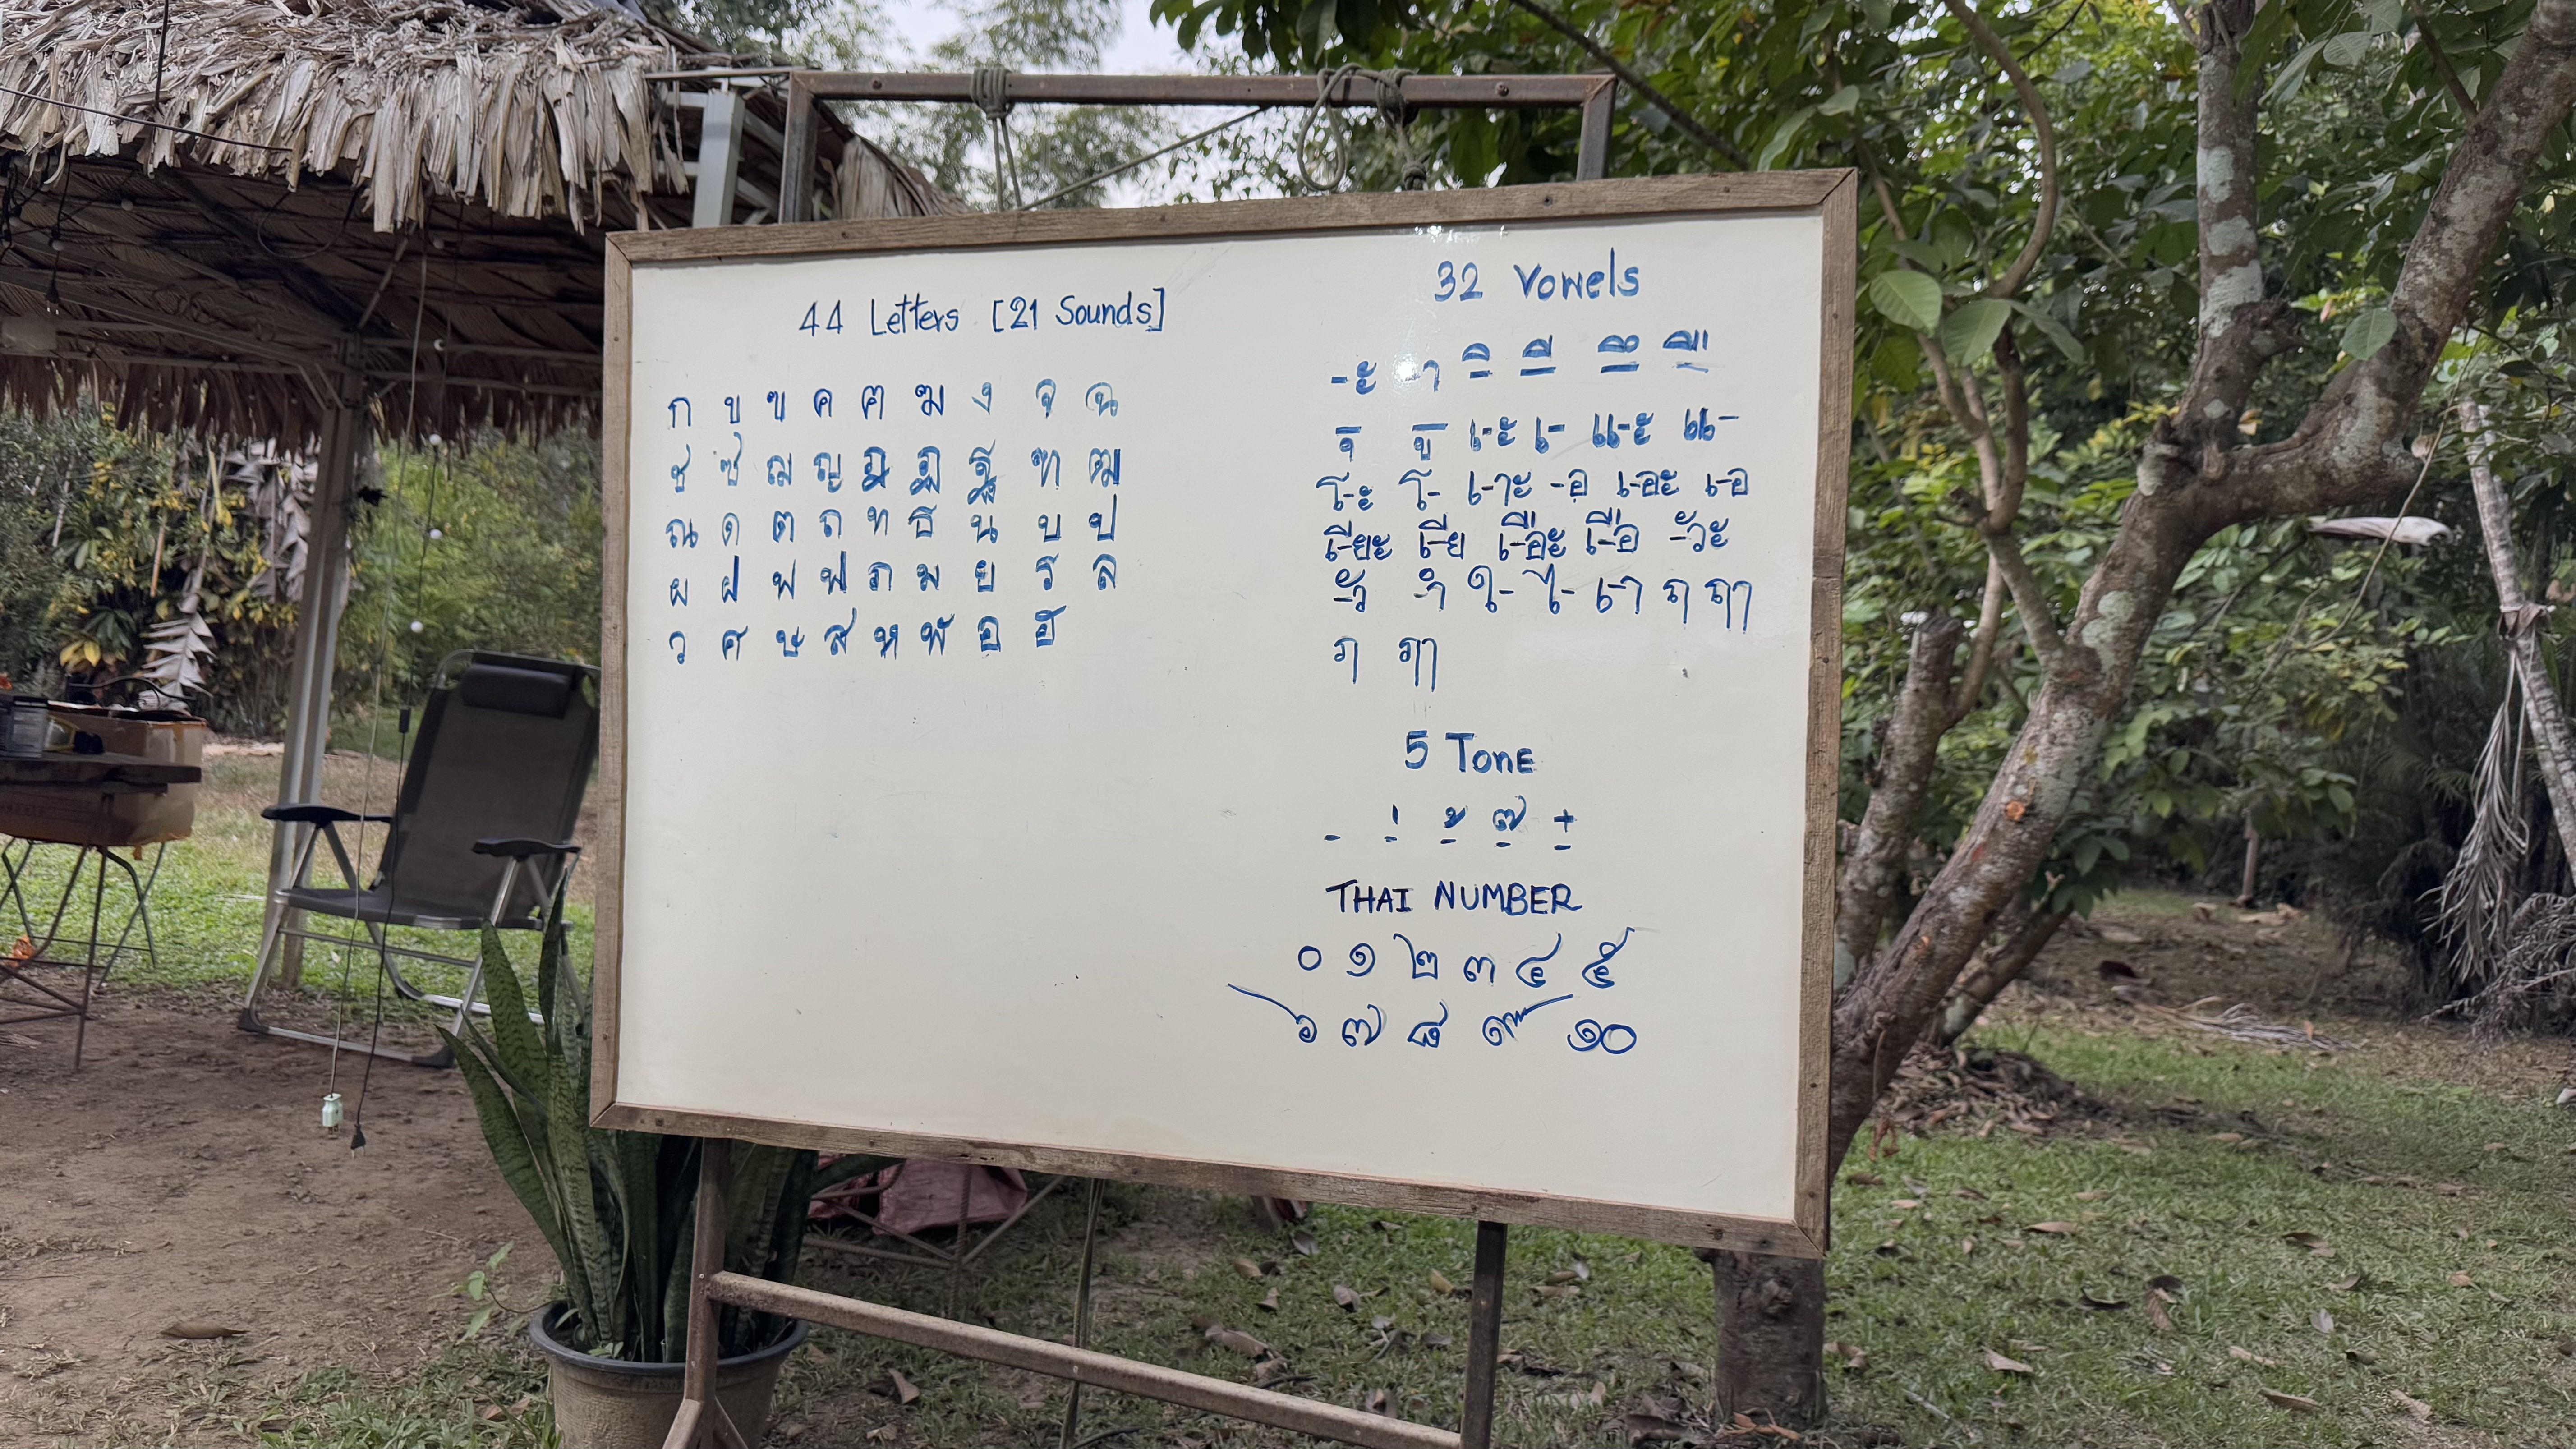 44 Letters [21 Sounds]
ก ข ฃ ค ฅ ฆ ง จ ฉ
ช ซ ฌ ญ ฎ ฏ ฐ ฑ ฒ
ณ ด ต ถ ท ธ น บ ป
ผ ฝ พ ฟ ภ ม ย ร ล
ว ศ ษ ส ห ฬ อ ฮ
32 Vowels
-ะ -า -ิ -ี -ึ -ื
-ุ -ู เ-ะ เ- แ-ะ แ-
โ-ะ โ- เ-าะ -อ เ-อะ เ-อ
เ-ียะ เ-ีย เ-ือะ เ-ือ -ัวะ
-ัว -ำ ใ- ไ- เ-า ฤ ฤๅ
ฦ ฦๅ
5 Tone
- -่ -้ -๊ -๋
THAI NUMBER
๐ ๑ ๒ ๓ ๔ ๕
๖ ๗ ๘ ๙ ๑๐